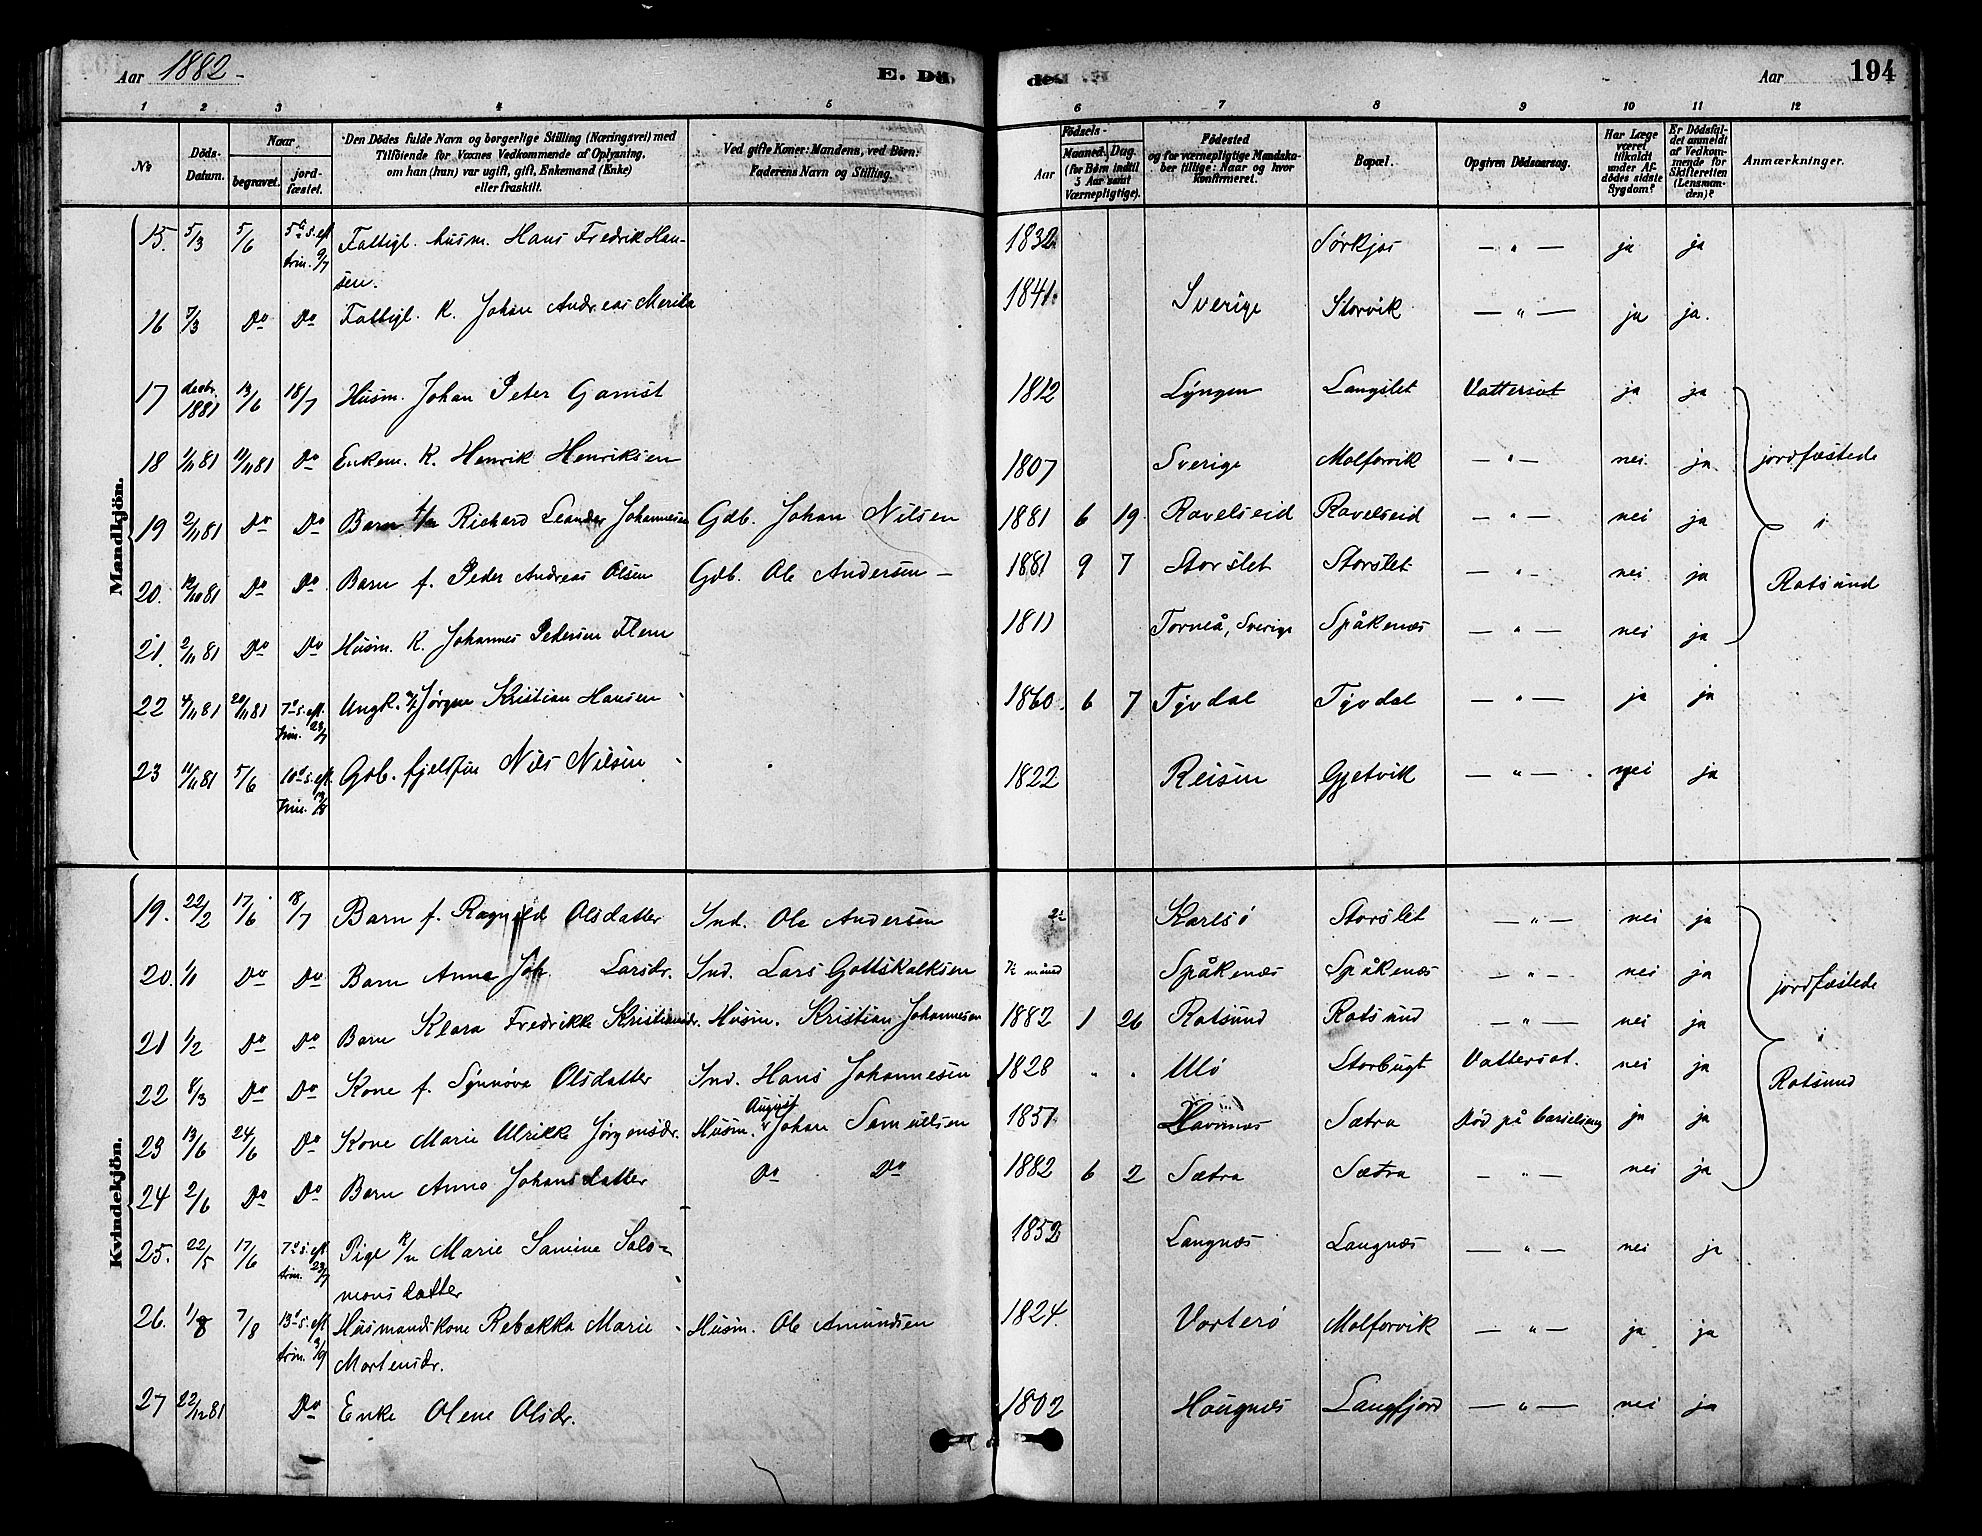 Aar 1882. E. Dö- de. Aar 194
1 2 3 4 5 6 7 8 9 10 11 12
No
Döds-Datum.
Naar
begravet.
jord-fæstet.
Den Dödes fulde Navn og borgerlige Stilling (Næringsvei) med
Tilföiende for Voxnes Vedkommende af Oplysning,
om han (hun) var ugift, gift, Enkemand (Enke)
eller fraskilt.
Ved gifte Koner: Mandens, ved Börn:
Faderens Navn og Stilling.
Födsels-
Aar
Maaned. Dag.
(for Børn indtil
5 Aar samt
Værnepligtige).
Födested
og for værnepligtige Mandska-
ber tillige: Naar og hvor
Konfirmeret.
Bopæl.
Opgiven Dödsaarsag.
Har Læge
været
tilkaldt
under Af-
dödes sidste
Sygdom?
Er Dödsfal-
det anmeldt
af Vedkom-
mende for
Skifteretten
(Lensman-
den)?
Anmærkninger.
Mandkjön.
15. 5/3 5/6 5te s. eft trin. 9/7 Fattigl. husm. Hans Fredrik Han- 1832 Sørkjos — " — ja ja
sen.
16 7/3 Do Do Fattigl. K. Johan Andreas Merila 1841 Sverige Storvik — " — ja ja.
17 decbr. 1881 13/6 18/7 Husm. Johan Peter Gamst 1812 Lyngen Langslet Vattersot ja ja
18 1/11 81 11/11 81 Do Enkem. K. Henrik Henriksen 1807 Sverige Molforvik — " — nei ja jordfæstede
19 2/11 81 Do Do Barn Richard Leander Johannesen Gdb. Johan Nilsen 1881 6 19 Ravelseid Ravelseid — " — nei ja i
20. 12/10 81 Do Do Barn f. Peder Andreas Olsen Gdb. Ole Andersen — 1881 9 7 Storslet Storslet — " — nei ja Rotsund
21. 2/11 81 Do Do Husm. K. Johannes Pedersen Flem 1811 Torneå, Sverige Spåkenæs — " — nei ja
22 4/11 81 20/11 81 7de s. eft. trin. 23/7 Ungk. Jørgen Kristian Hansen 1860 6 7 Tyvdal Tyvdal — " — ja ja
23 5/6 10de s. eft. trin. 13/8 Gdb. fjeldfin Nils Nilsen 1822 Reisen Gjetvik — " — nei ja
Kvindekjön.
19. 22/2 17/6 18/7 Barn f. Ragnild Olsdatter Ind. Ole Andersen Karlsø Storslet — " — nei ja
20. 1/1 Do Do Barn Anna Joh. Larsdr. Ind. Lars Gottskalksen Spåkenæs Spåkenæs — " — nei ja jordfæstede
21 1/2 Do Do Barn Klara Fredrikke Kristiansdr. Husm. Kristian Johannesen 1882 1 26 Rotsund Rotsund — " — nei ja i
22 8/3 Do Do Kone f. Synnøva Olsdatter Ind. Hans Johannesen 1828 " " Ulø Storbugt Vattersot. nei ja Rotsund
August
23 13/6 24/6 Do Kone Marie Ulrikke Jørgensdr. Husm. Johan Samuelsen 1851 Havnnæs Sætra Død på barselseng ja ja
24 2/6 Do Do Barn Anna Johansdatter Do Do 1882 6 2 Sætra Sætra — " — nei ja
25. 22/5 17/6 7de s. eft trin. 23/7 Pige K/n Marie Samine Salo- 1852 Langnæs Langnæs — " — nei ja
monsdatter
26. 1/8 7/8 13de s. eft trin. 3/9 Husmandskone Rebækka Marie Husm. Ole Amundsen 1824. Vorterø Molforvik — " — ja ja
Mortensdr.
27 22/12 81 Do Enke Olene Olsdr. 1802 Haugnæs Langfjord — " — nei ja